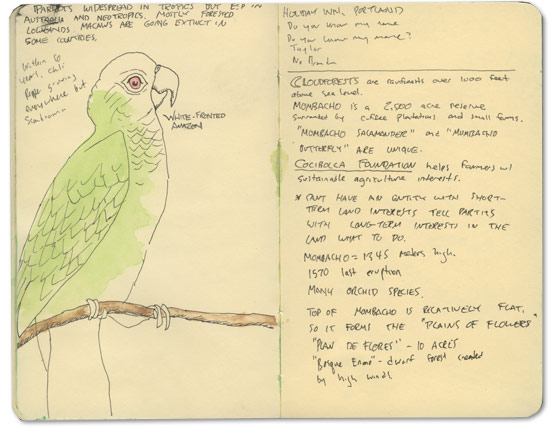 PARROTS WIDESPREAD IN TROPICS BUT ESP IN
AUSTRALIA AND NEOTROPICS. MOSTLY FORESTED
LOWLANDS MACAWS ARE GOING EXTINCT IN
SOME COUNTRIES.
Within 6
years, chili
growing
everywhere but
WHITE-FRONTED
AMAZON
HOLIDAY INN,
Do you know my name
Do you know my name?
Taylor
No
CLOUDFORESTS are rainforests over 1000 feet
above sea level.
MOMBACHO IS A 2,500 acre reserve
surrounded by coffee plantations and small farms.
"MOMBACHO SALAMANDER" and "MOMBACHO
BUTTERFLY" ARE UNIQUE.
COCIBOLCA FOUNDATION helps farmers w/
sustainable agriculture interests.
* CAN'T HAVE AN ENTITY WITH SHORT-
TERM LAND INTERESTS TELL PARTIES
WITH LONG-TERM INTERESTS IN THE
LAND WHAT TO DO.
MOMBACHO = 1345 meters high.
1570 last eruption
MANY ORCHID SPECIES.
TOP OF MOMBACHO IS RELATIVELY FLAT,
SO IT FORMS THE "PLAINS OF FLOWERS"
"PLAN DE FLORES" - 10 ACRES
"Bosque Enano" - dwarf forest created
by high winds